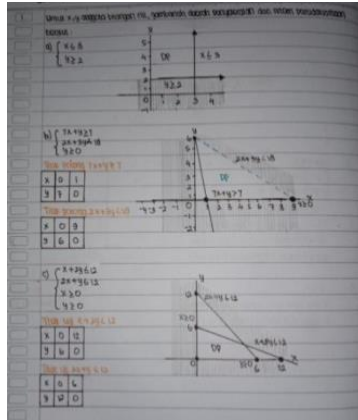 1 Untuk x,y anggota bilangan riil, gambarlah daerah penyelesaian dari sistem pertidaksamaan
berikut :
a) { x ≤ 3
y ≥ 2
5
4
3
2
1
0 1 2 3 4
DP
x ≤ 3
y ≥ 2
b) { 7x+y ≥ 7
2x+3y < 18
y ≥ 0
Titik potong 7x+y ≥ 7
x 0 1
y 7 0
Titik potong 2x+3y < 18
x 0 9
y 6 0
y
2x+3y < 18
DP
7x+y ≥ 7
-4 -3 -2 -1 0 1 2 3 4 5 6 7 8 9
y ≥ 0
x
c) { x+2y ≤ 12
2x+y ≤ 12
x ≥ 0
y ≥ 0
x+2y ≤ 12
x 0 12
y 6 0
2x+y ≤ 12
x 0 6
y 12 0
y
12
2x+y ≤ 12
x ≥ 0
6
x+2y ≤ 12
DP
0
y ≥ 0
6
12
x